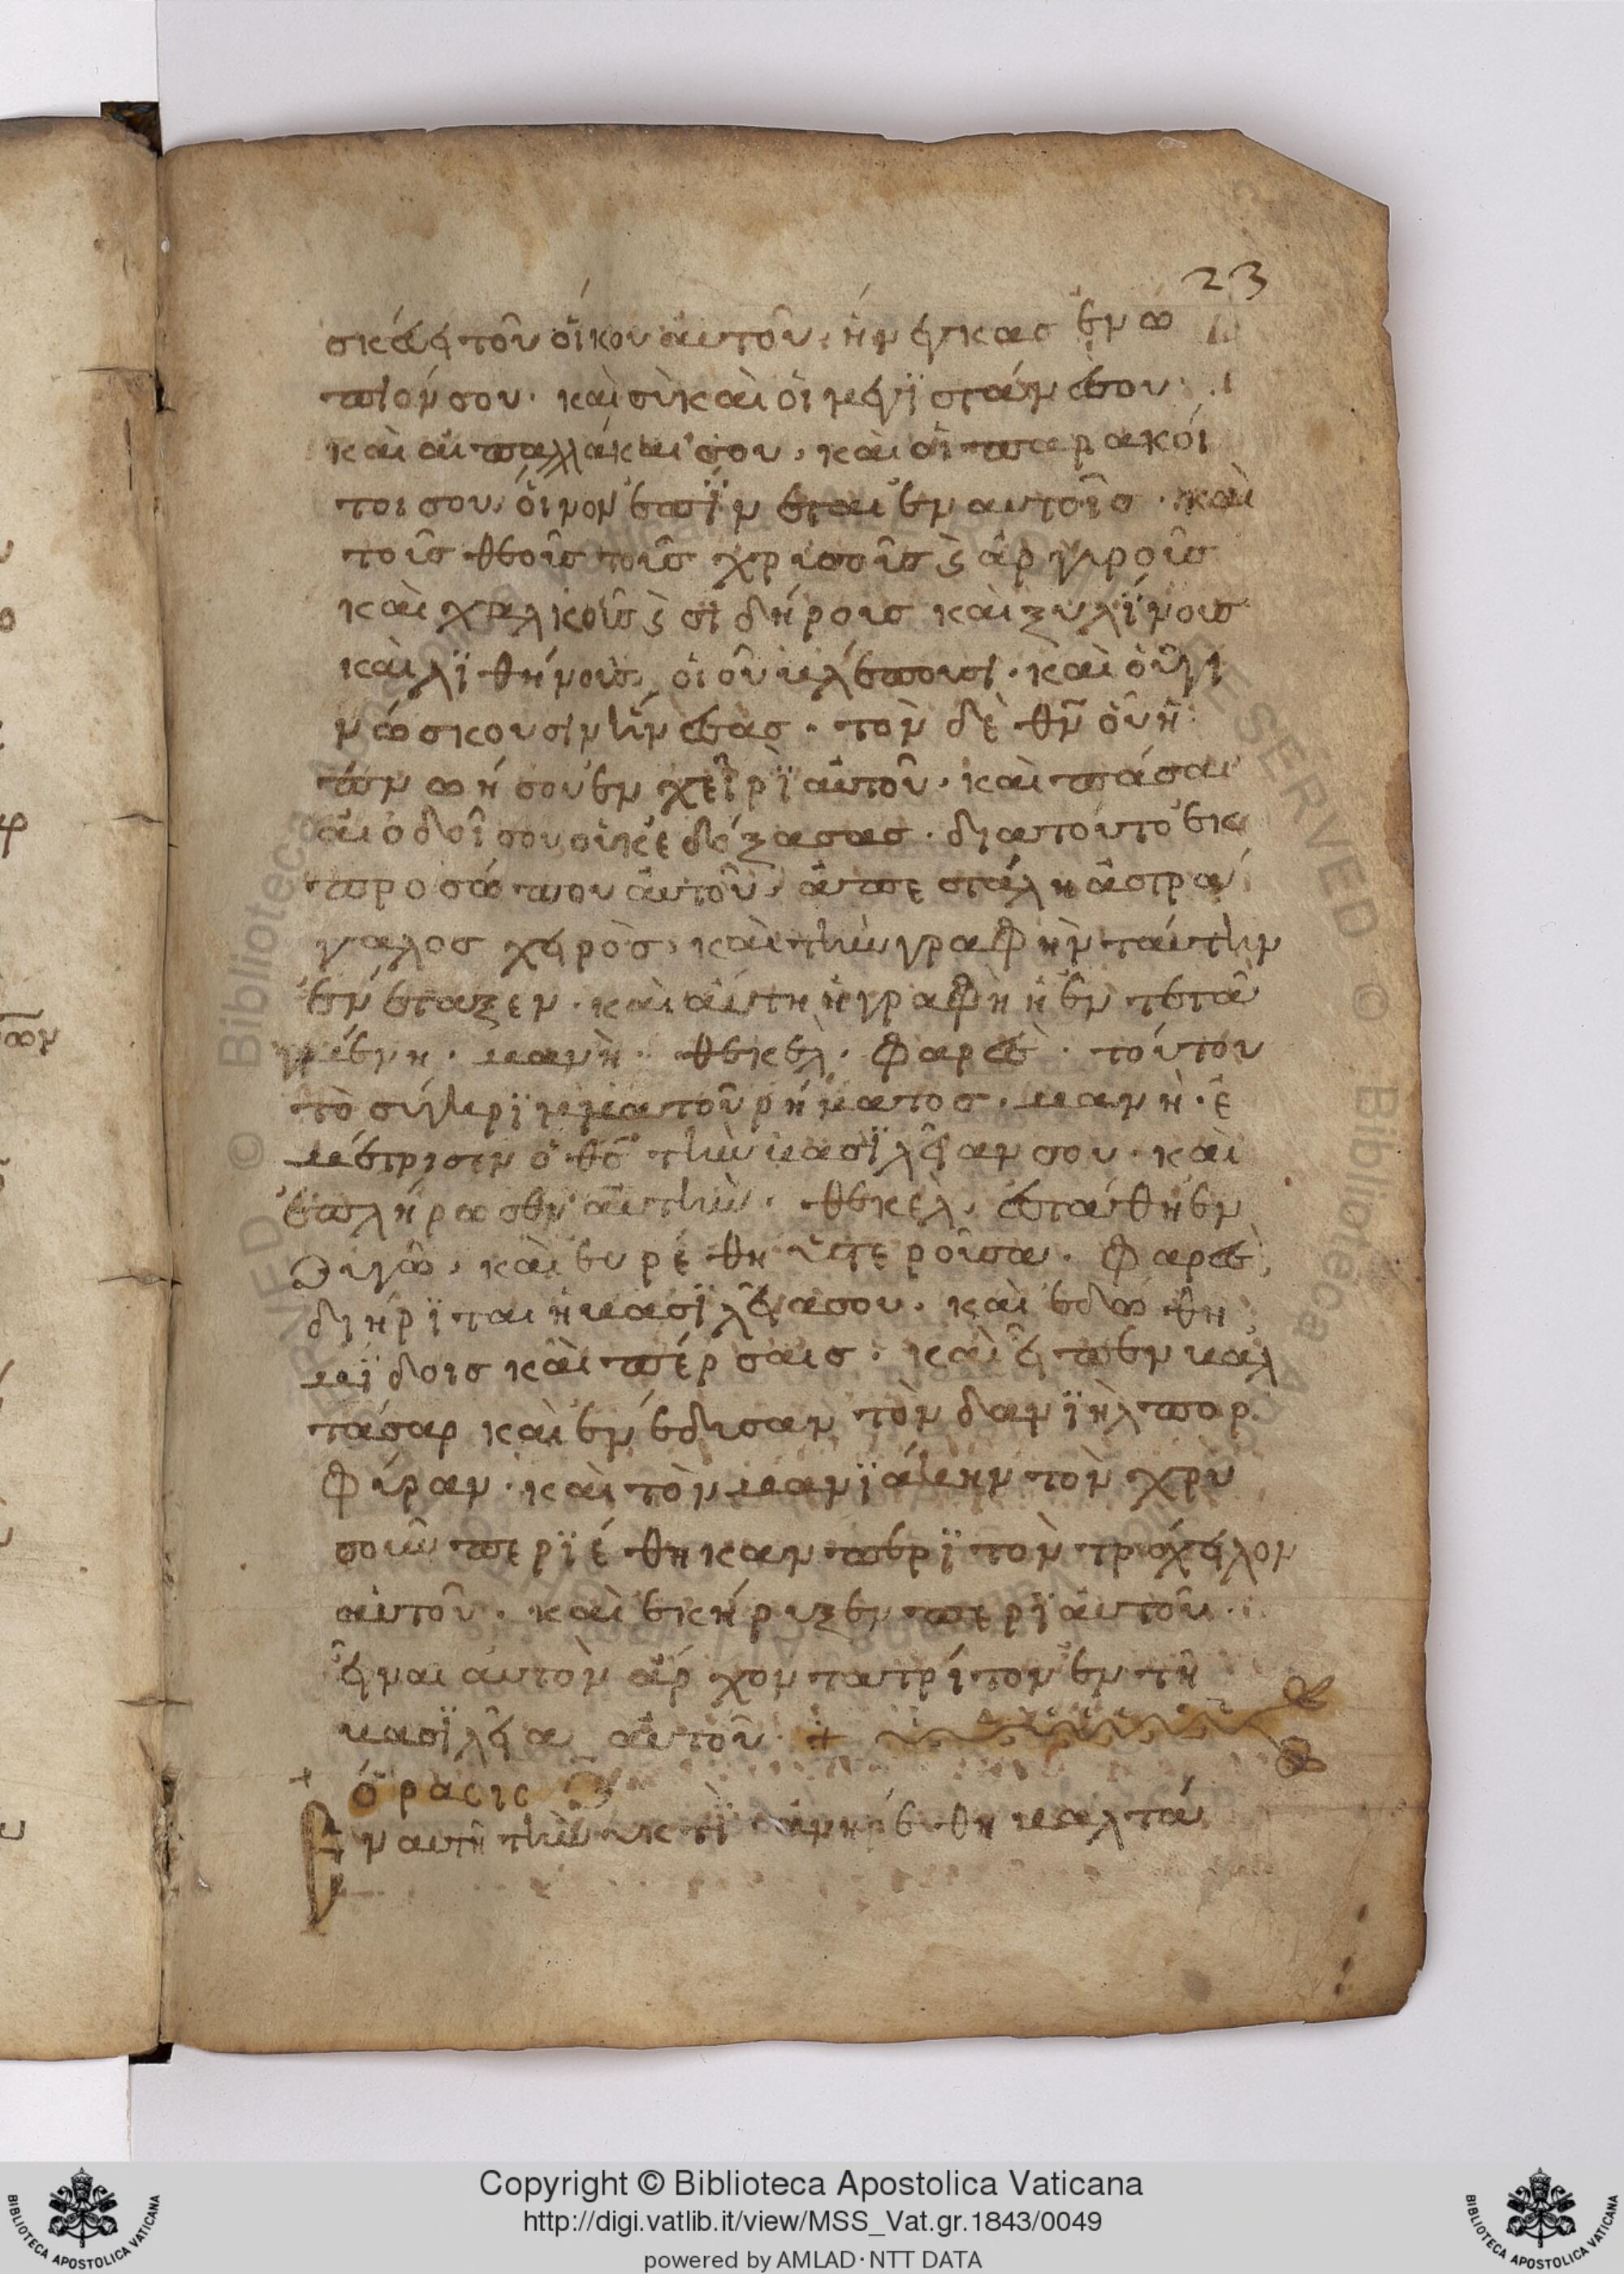 23
σκεύη τοῦ οἴκου αὐτοῦ, ἤνεγκας ἐνώ
πιόν σου· καὶ σὺ καὶ οἱ μεγϊστάνές σου·
καὶ αἱ παλλάκαι σου, καὶ αἱ παρακοί
τοι σου, οἶνον ἐπίϊνεται ἐν αὐτοῖς· καὶ
τοὺς θεοὺς τοὺς χρυσοῦς ϛ ἀργυροῦς
καὶ χαλκοῦς ϛ σιδήρους καὶ ξυλΐνους
καὶ λϊθήνους, οἳ οὐ βλέπουσι· καὶ οὐ γι
νώσκουσιν ᾔνεσας· τὸν δὲ θν̅ οὗ ἡ
πνωή σου ἐν χειρῒ αὐτοῦ· καὶ πάσαι
αἱ ὁδοί σου οὐκ ἐδόξασας· διατοῦτο ἐκ
προσώπου αὐτοῦ, ἀπεστάλη ἀστρά
γαλος χειρὸς, καὶ τὴν γραφὴν ταύτην
ἐνέταξεν· καὶ αὕτη ἡ γραφὴ ἡ ἐντετα
γμένη· μανὴ· θεκελ· φαρὲς· τοῦτον
τὸ σύγκρϊμμα τοῦ ῥήματος· μανὴ· ἐ
μέτρισεν ὁ θς̅ τὴν βασϊλείαν σου· καὶ
ἐπλήρωσεν αὐτὴν· θεκὲλ, ἐστάθη ἐν
ζυγῶ, καὶ εὑρέθη ὑστεροῦσα· φαρὲς,
διήρϊται ἡ βασϊλεία σου· καὶ ἐδώθη
μΐδοις καὶ πέρσαις· καὶ εἶπεν βαλ
τάσαρ καὶ ἐνέδυσαν τὸν δανϊὴλ πορ
φύραν· καὶ τὸν μανϊάκην τὸν χρυ
σοῦν περϊέθηκαν περῒ τὸν τράχηλον
αὐτοῦ· καὶ ἐκήρυξεν περῒ αὐτοῦ·
εἶναι αὐτὸν ἄρχοντα τρίτον ἐν τῆ
βασϊλεία αὐτοῦ· +
+ ὅρασις
Ἐν αὐτῆ τῆ νυκτῒ ἀνηρέθη βαλτά
Copyright © Biblioteca Apostolica Vaticana
http://digi.vatlib.it/view/MSS_Vat.gr.1843/0049
powered by AMLAD · NTT DATA
BIBLIOTECA APOSTOLICA VATICANA
BIBLIOTECA APOSTOLICA VATICANA